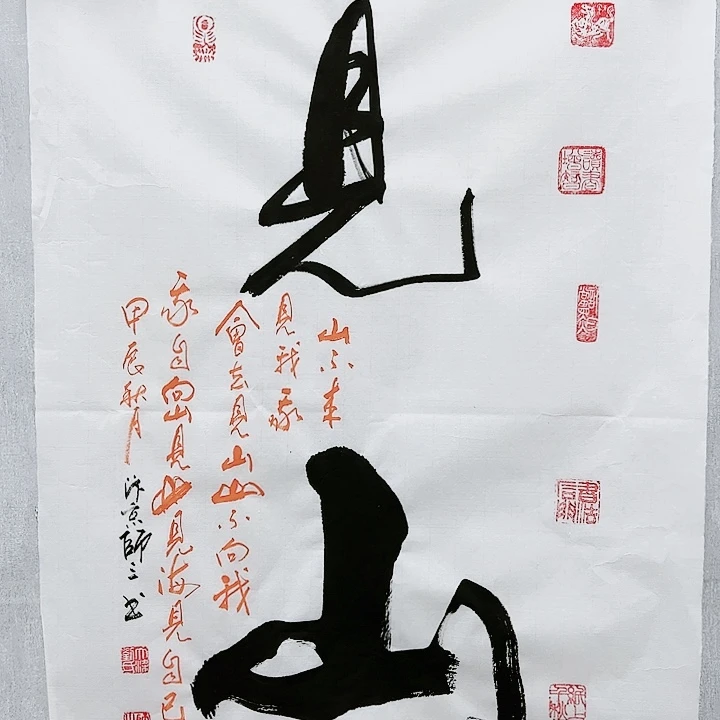 見山
山不来
見我我
會去見山山不向我
我自向山見山見海見自己
甲辰秋月
汴京師三书